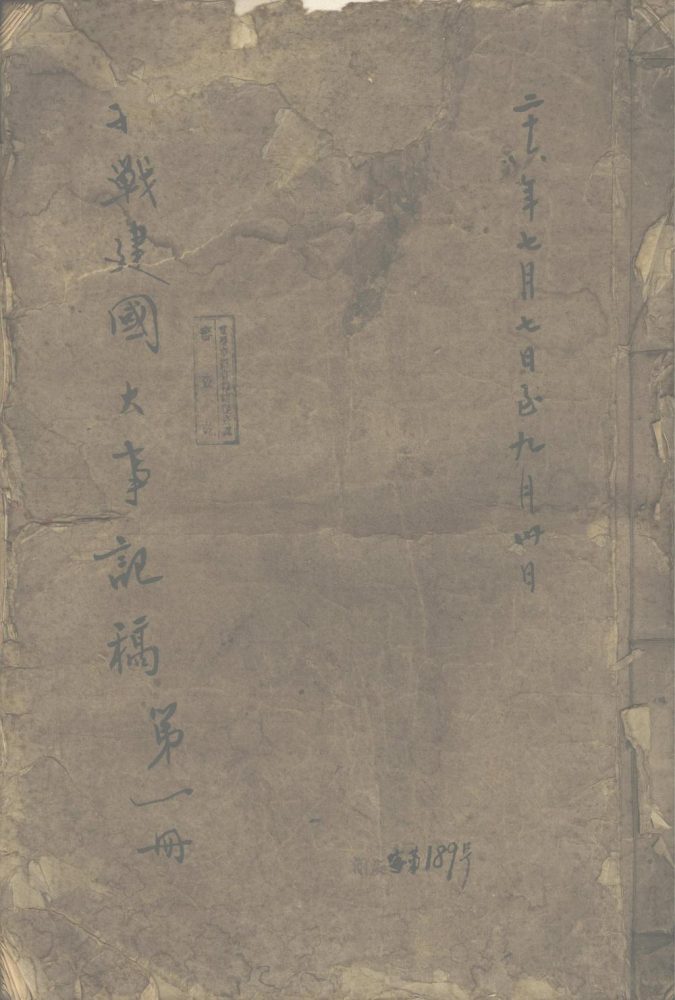 二十六年七月七日至九月卅日
戰建國大事記稿 第一冊
189号